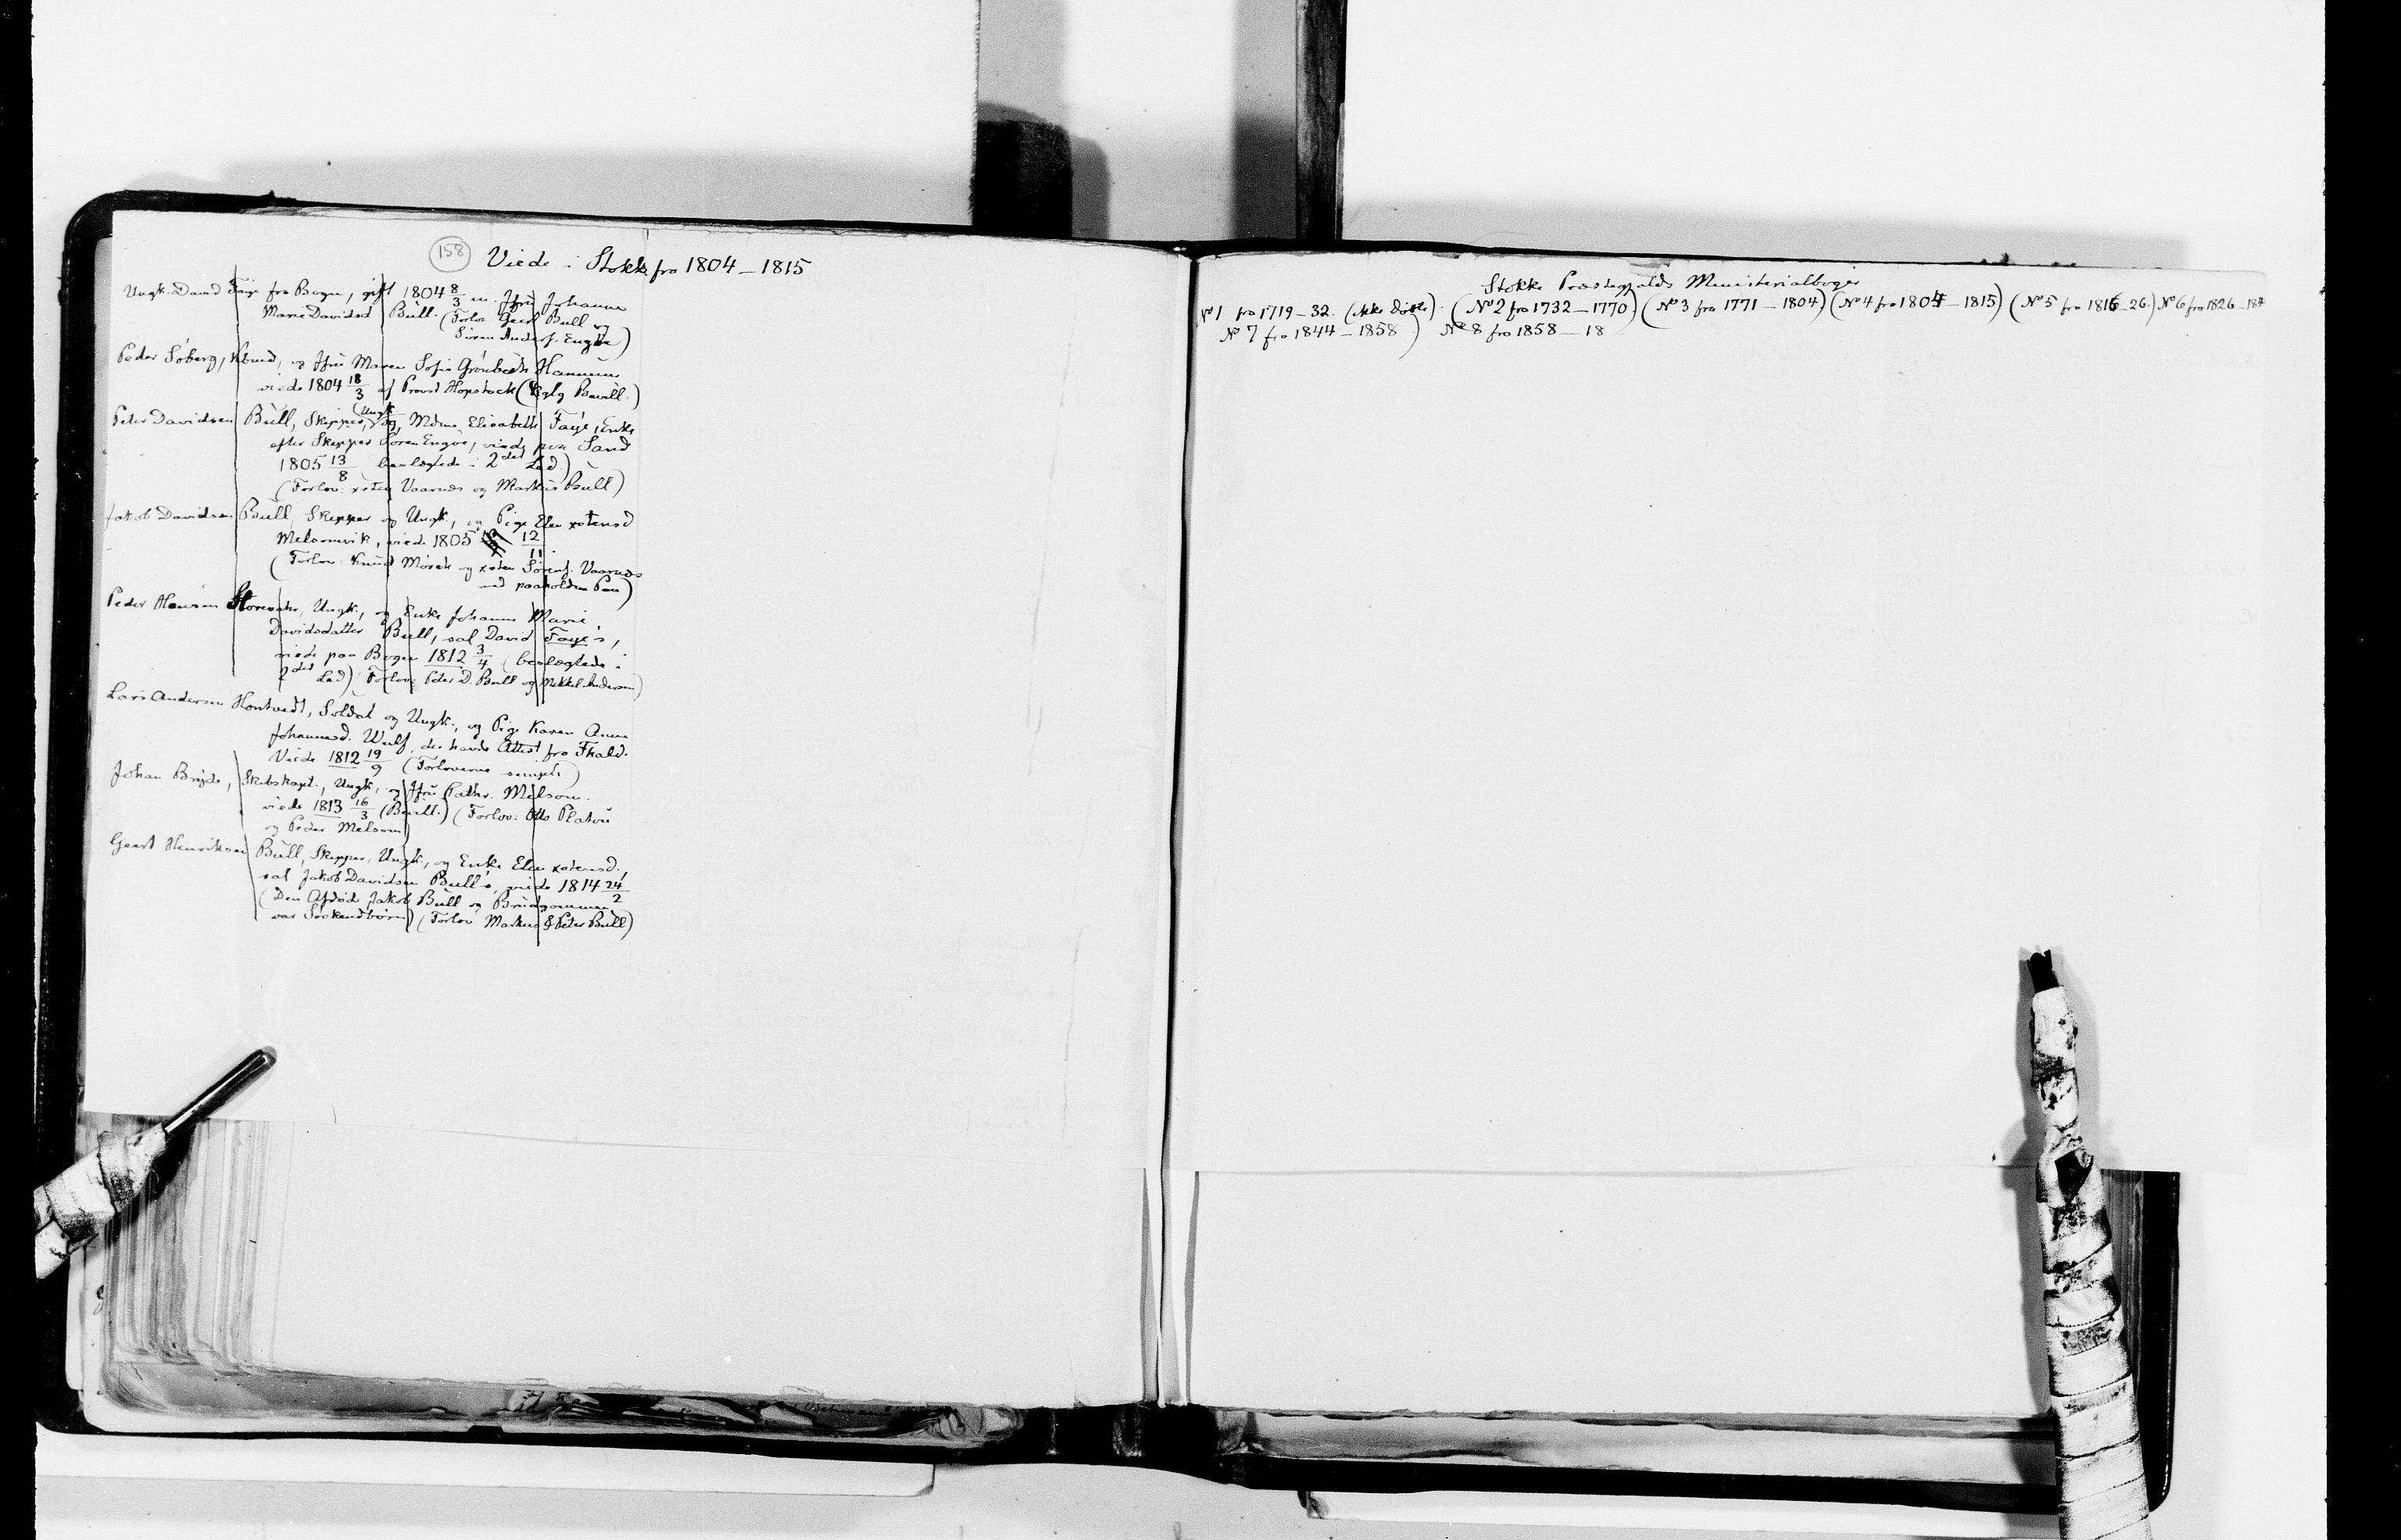 158 Viede i Stokke fra 1804–1815
Ungk. David Faye fra Bogen, gift 1804 8/3 m. Jfru Johanne
Marie Davidsd Bull. (Forlov Geert Bull og
Søren Anders. Engøe)
Peder Søberg, og Jfru Maren Sofie Grønbech Hannum
viede 1804 18/3 af Provst Hopstock (Kglg Bevill.)
Peter Davidsen Bull, Skipper, (Ungk og Mdme Elisabeth Faye, Enke
efter Skipper Søren Engøe, viede paa Sand
1805 13/8 beslægtede i 2det Led.)
(Forlov: xsten Vaarnes og Markus Bull)
Jakob Davidsen Bull, Skipper og Ungk, og Pige Elen xstensd
Melsomvik, viede 1805 12/11.
(Forlov: Knud Mørch og xsten Sørens. Vaarnes
med paaholden Pen)
Peder Hansen Ungk., og Enke Johanne Marie
Davidsdatter Bull, sal David Faye's,
viede paa Bogen 1812 3/4 (beslægtede i
2det Led) Forlov: Peter D. Bull og Mikkel Andersen)
Lars Andersen Hontvedt, Soldat og Ungk., og Pige Karen Anne
Johannesd. Wulf, der havde Attest fra Fhald.
Viede 1812 19/9 (Forloverne
Johan Bryde, Skibskapt., Ungk, og Jfru Cathr. Melsom.
viede 1813 16/3 (Bevill.) (Forlov: Otto Platou
og Peder Melsom)
Geert Henriksen Bull, Skipper, Ungk., og Enke Elen xstensd.,
sal Jakob Davidsen Bull's, viede 1814 24/2
(Den Afdøde Jakob Bull og Brudgommen
var Søskendbørn) (Forlov Markus & Peter Bull)
Stokke Præstegjælds Ministerialbøger
No 1 fra 1719–32. (ikke døbte). (No 2 fra 1732–1770) (No 3 fra 1771–1804) (No 4 fra 1804–1815) (No 5 fra 1816–26.) No 6 fra 1826–
No 7 fra 1844–1858) No 8 fra 1858–18